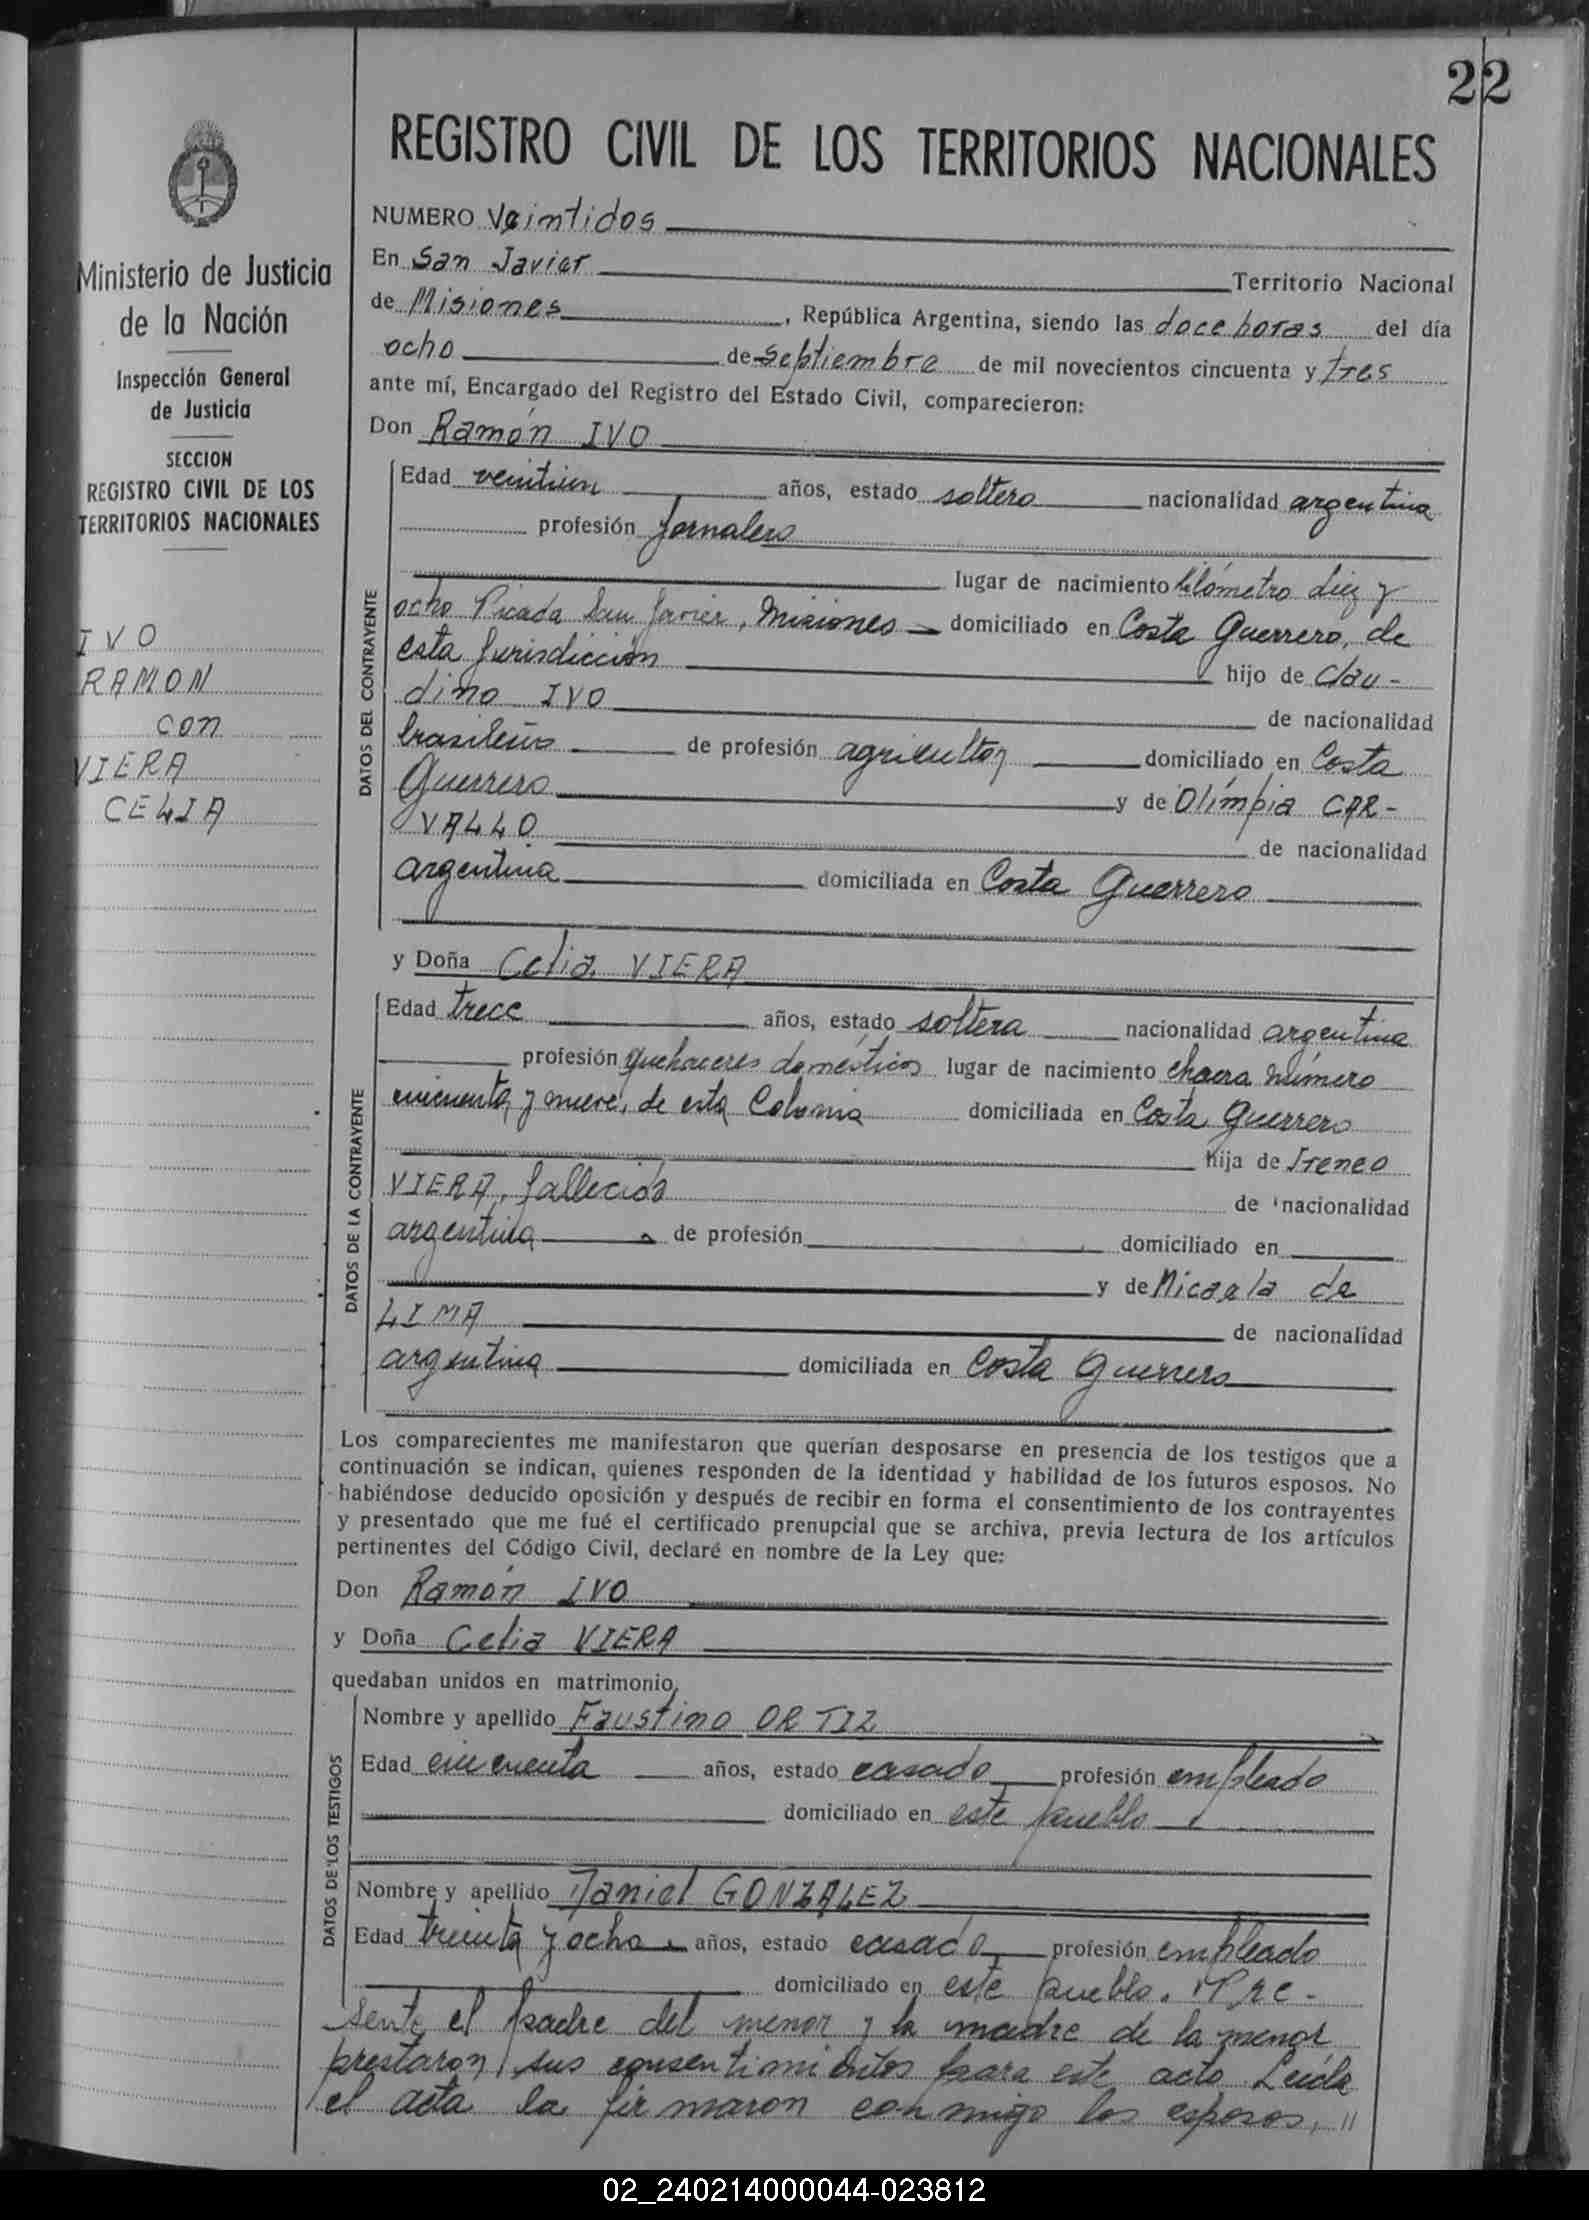 22
REGISTRO CIVIL DE LOS TERRITORIOS NACIONALES
Ministerio de Justicia
de la Nación
Inspección General
de Justicia
SECCION
REGISTRO CIVIL DE LOS
TERRITORIOS NACIONALES
IVO
RAMON
con
VIERA
CELIA
NUMERO Veintidos
En San Javier Territorio Nacional
de Misiones, República Argentina, siendo las doce horas del día
ocho de septiembre de mil novecientos cincuenta y tres
ante mí, Encargado del Registro del Estado Civil, comparecieron:
Don Ramón IVO
DATOS DEL CONTRAYENTE
Edad veintiun años, estado soltero nacionalidad argentina
profesión jornalero
lugar de nacimiento kilómetro diez y
ocho Picada San Javier, Misiones domiciliado en Costa Guerrero, de
esta jurisdicción hijo de Clau-
dino IVO de nacionalidad
brasileño de profesión agricultor domiciliado en Costa
Guerrero y de Olímpia CAR-
VALLO de nacionalidad
argentina domiciliada en Costa Guerrero
y Doña Celia VIERA
DATOS DE LA CONTRAYENTE
Edad trece años, estado soltera nacionalidad argentina
profesión quehaceres domésticos lugar de nacimiento chacra número
cincuenta y nueve, de esta Colonia domiciliada en Costa Guerrero
hija de Ireneo
VIERA, fallecido de nacionalidad
argentina de profesión domiciliado en
y de Micaela de
LIMA de nacionalidad
argentina domiciliada en Costa Guerrero
Los comparecientes me manifestaron que querían desposarse en presencia de los testigos que a
continuación se indican, quienes responden de la identidad y habilidad de los futuros esposos. No
habiéndose deducido oposición y después de recibir en forma el consentimiento de los contrayentes
y presentado que me fué el certificado prenupcial que se archiva, previa lectura de los artículos
pertinentes del Código Civil, declaré en nombre de la Ley que:
Don Ramón IVO
y Doña Celia VIERA
quedaban unidos en matrimonio.
DATOS DE LOS TESTIGOS
Nombre y apellido Faustino ORTIZ
Edad cincuenta años, estado casado profesión empleado
domiciliado en este pueblo
Nombre y apellido Daniel GONZALEZ
Edad treinta y ocho años, estado casado profesión empleado
domiciliado en este pueblo. Pre-
sente el padre del menor y la madre de la menor
prestaron sus consentimientos para este acto. Leída
el acta la firmaron conmigo los esposos, "
02_240214000044-023812